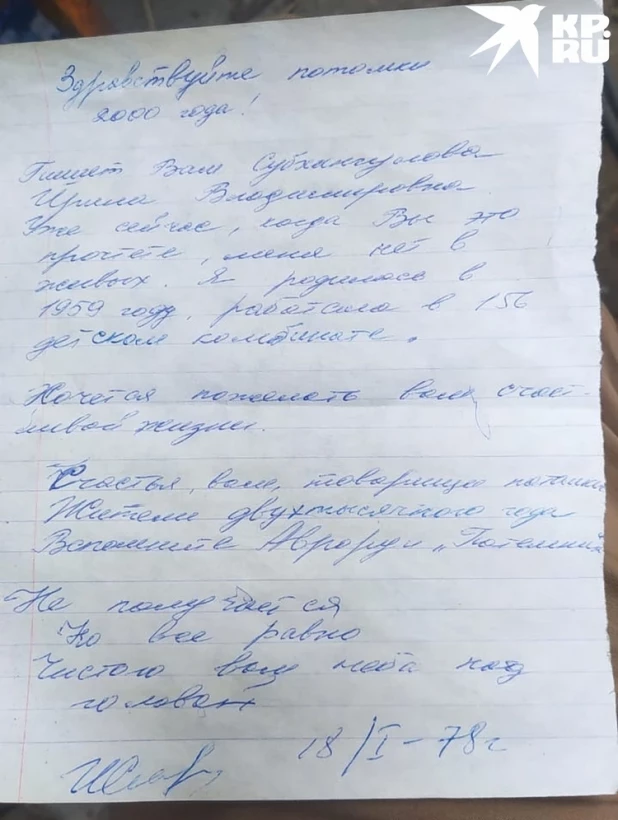 KP.RU
Здравствуйте потомки
2000 года!
Пишет Вам Субхангулова
Ирина Владимировна
Уже сейчас, когда Вы это
прочтете, меня нет в
живых. Я родилась в
1959 году, работала в 156
детском комбинате.
Хочется пожелать вам счаст-
ливой жизни.
Счастья, вам, товарищи потомки
Жители двухтысячного года
Вспомните Аврору и „Потемкин
Не получается
Но все равно
Чистого вам неба над
головой
18/I-78г